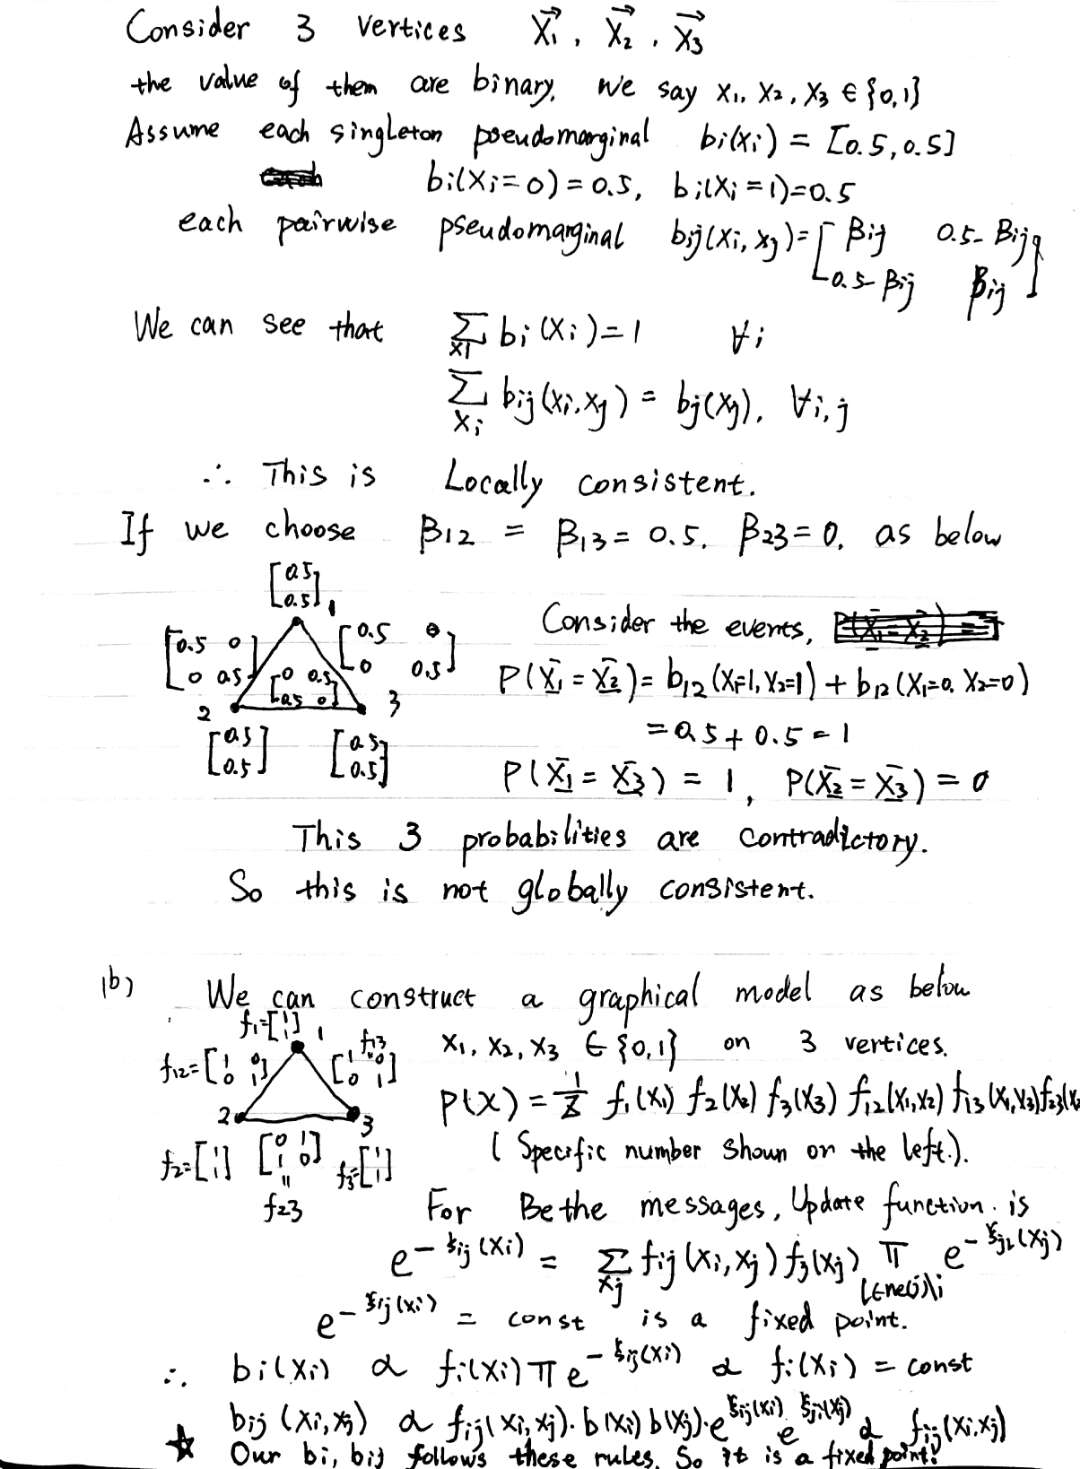 Consider 3 vertices X⃗₁, X⃗₂, X⃗₃
the value of them are binary, we say X₁, X₂, X₃ ∈ {0,1}
Assume each singleton pseudomarginal bi(Xi) = [0.5, 0.5]
bi(Xi=0) = 0.5, bi(Xi=1)=0.5
each pairwise pseudomarginal bij(Xi, Xj) = [βij 0.5-βij
0.5-βij βij]
We can see that Σ_{Xi} bi(Xi)=1 ∀i
Σ_{Xi} bij(Xi,Xj) = bj(Xj), ∀i,j
∴ This is Locally consistent.
If we choose β12 = β13 = 0.5, β23 = 0, as below
[0.5
0.5] 1
[0.5 0
0 0.5]
[0.5 0
0 0.5]
[0 0.5
0.5 0]
2 3
[0.5
0.5] [0.5
0.5]
Consider the events,
P(X̄₁ = X̄₂) = b12(X₁=1, X₂=1) + b12(X₁=0, X₂=0)
= 0.5 + 0.5 = 1
P(X̄₁ = X̄₃) = 1, P(X̄₂ = X̄₃) = 0
This 3 probabilities are contradictory.
So this is not globally consistent.
(b) We can construct a graphical model as below
f₁=[1
1] 1
f12=[1 0
0 1]
f13
[1 0
0 1]
2 3
f2=[1
1] [0 1
1 0] f3=[1
1]
f23
X₁, X₂, X₃ ∈ {0,1} on 3 vertices.
P(X) = 1/Z f₁(X₁) f₂(X₂) f₃(X₃) f12(X₁,X₂) f13(X₁,X₃) f23(X₂
(Specific number shown on the left.).
For Bethe messages, Update function is
e^{-ξij(Xi)} = Σ_{Xj} fij(Xi,Xj) fj(Xj) Π_{l∈ne(j)\i} e^{-ξjl(Xj)}
e^{-ξij(Xi)} = const is a fixed point.
∴ bi(Xi) ∝ fi(Xi) Π e^{-ξij(Xi)} ∝ fi(Xi) = const
bij(Xi,Xj) ∝ fij(Xi,Xj)·b(Xi) b(Xj)·e^{ξij(Xi)} e^{ξji(Xj)} ∝ fij(Xi,Xj)
☆ Our bi, bij follows these rules, So it is a fixed point!